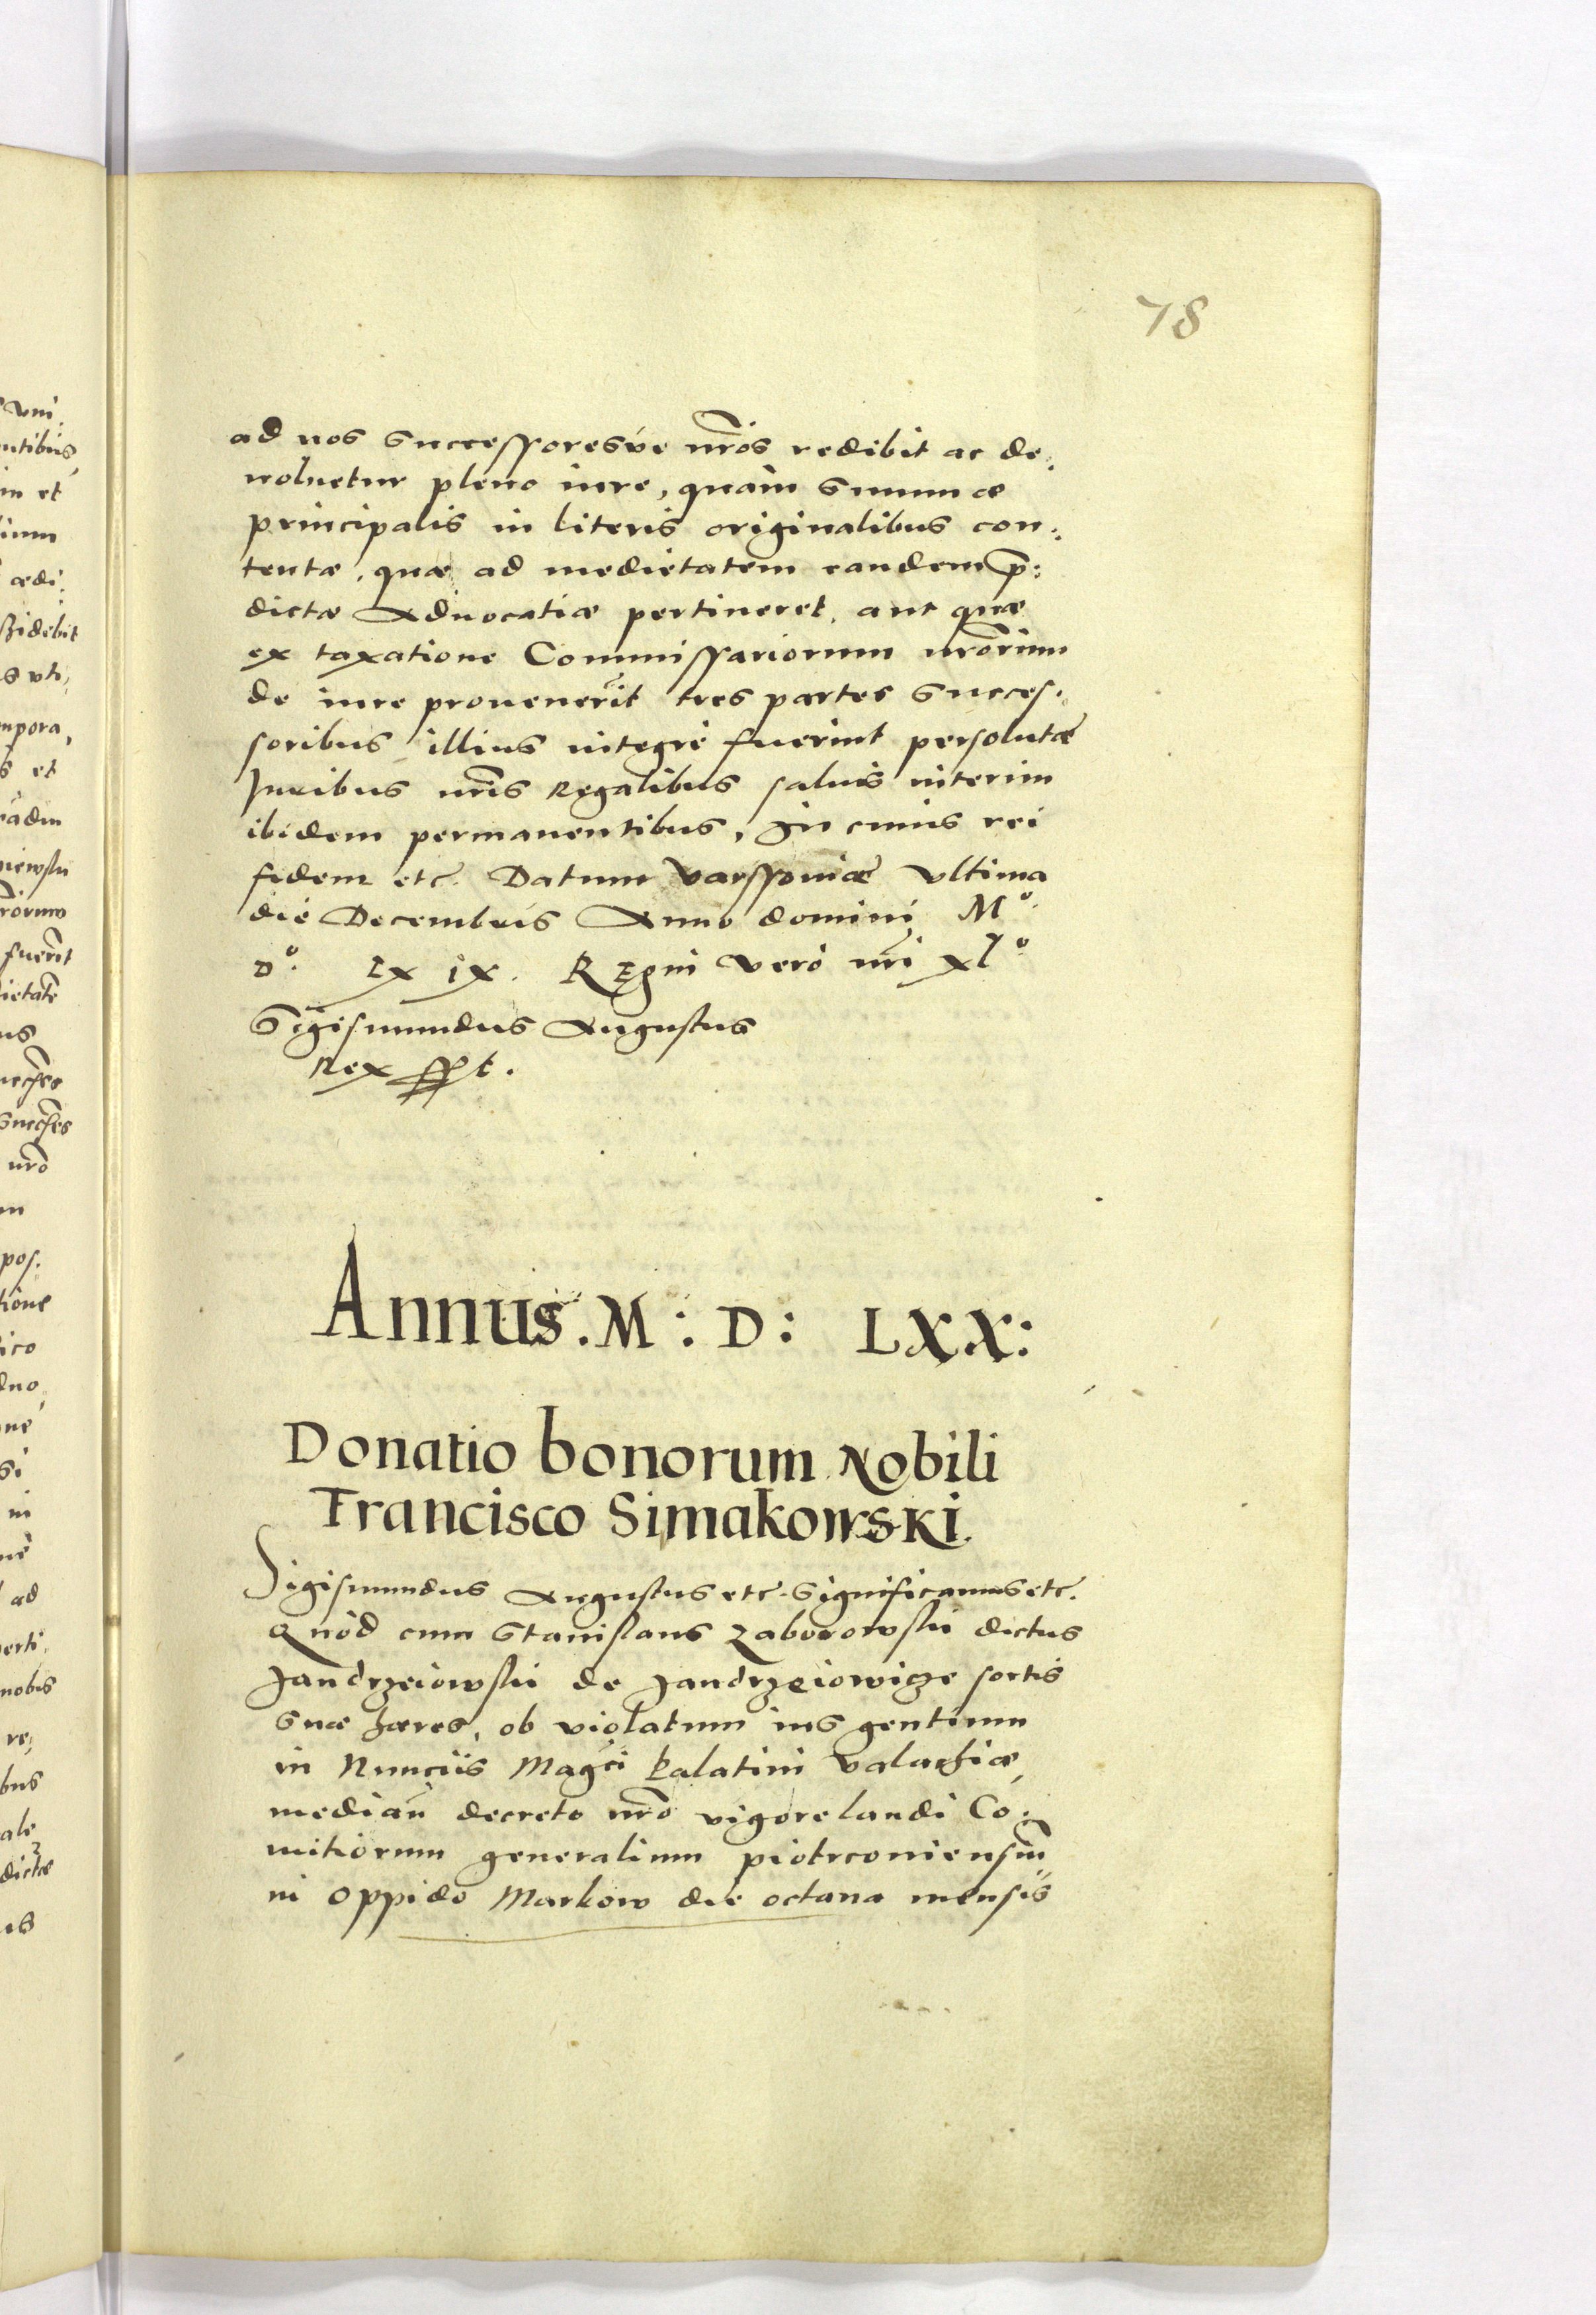 78
ad nos successoresve nr̃os redibit ac de:
voluetur pleno iure, quam summæ
principalis in literis originalibus con:
tentæ, quæ ad medietatem eandem p̃:
dictæ Aduocatiæ pertineret, aut quæ
ex taxatione Commissariorum nr̃orum
de iure prouenerit tres partes succes:
soribus illius integrè fuerint persolutæ
Iuribus nr̃is Regalibus saluis interim
ibidem permanentibus, In cuius rei
fidem etc. Datum Varssouiæ vltima
die Decembris Anno domini Mº.
Dº. LX iX. Regni vero nr̃i xlº
Sigismundus Augustus
Rex sspt.
Annus. M: D: LXX:
Donatio bonorum Nobili
Francisco Simakowski.
Sigismundus Augustus etc. Significamus etc.
Quod cum Stanislaus Zaborowski dictus
Jandrzeiowski de Jandrzeiowicze sortis
suæ hæres, ob violatum ius gentium
in Nunciis Magci Palatini Valachiæ,
median̄ decreto nr̃o vigore laudi Co:
mitiorum generalium piotrconiensiũ
in oppido Markow die octaua mensis